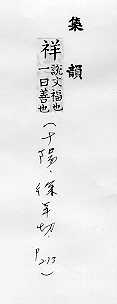 集韻
祥 說文福也
一曰善也
(十陽．徐羊切．P213)